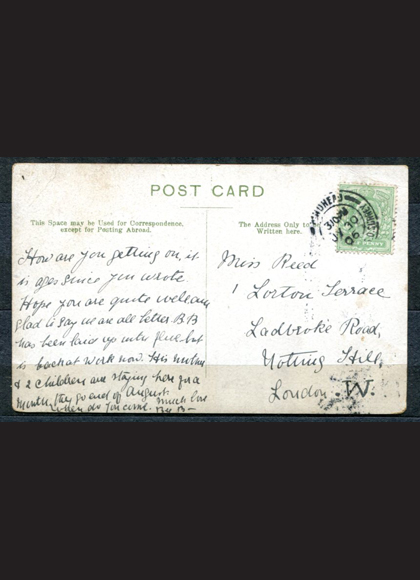 POST CARD
This Space may be Used for Correspondence,
except for Posting Abroad.
The Address Only to
Written here.
How are you getting on, it
is ages since you wrote
Hope you are quite well am
glad to say we are all better B.B
has been laid up with but
is back at work now. His mother
& 2 children are staying here for a
month they go end of August.
When do you come. Much love
Miss Reed
1 Lorton Terrace
Ladbroke Road,
Notting Hill,
London. W.
PENNY